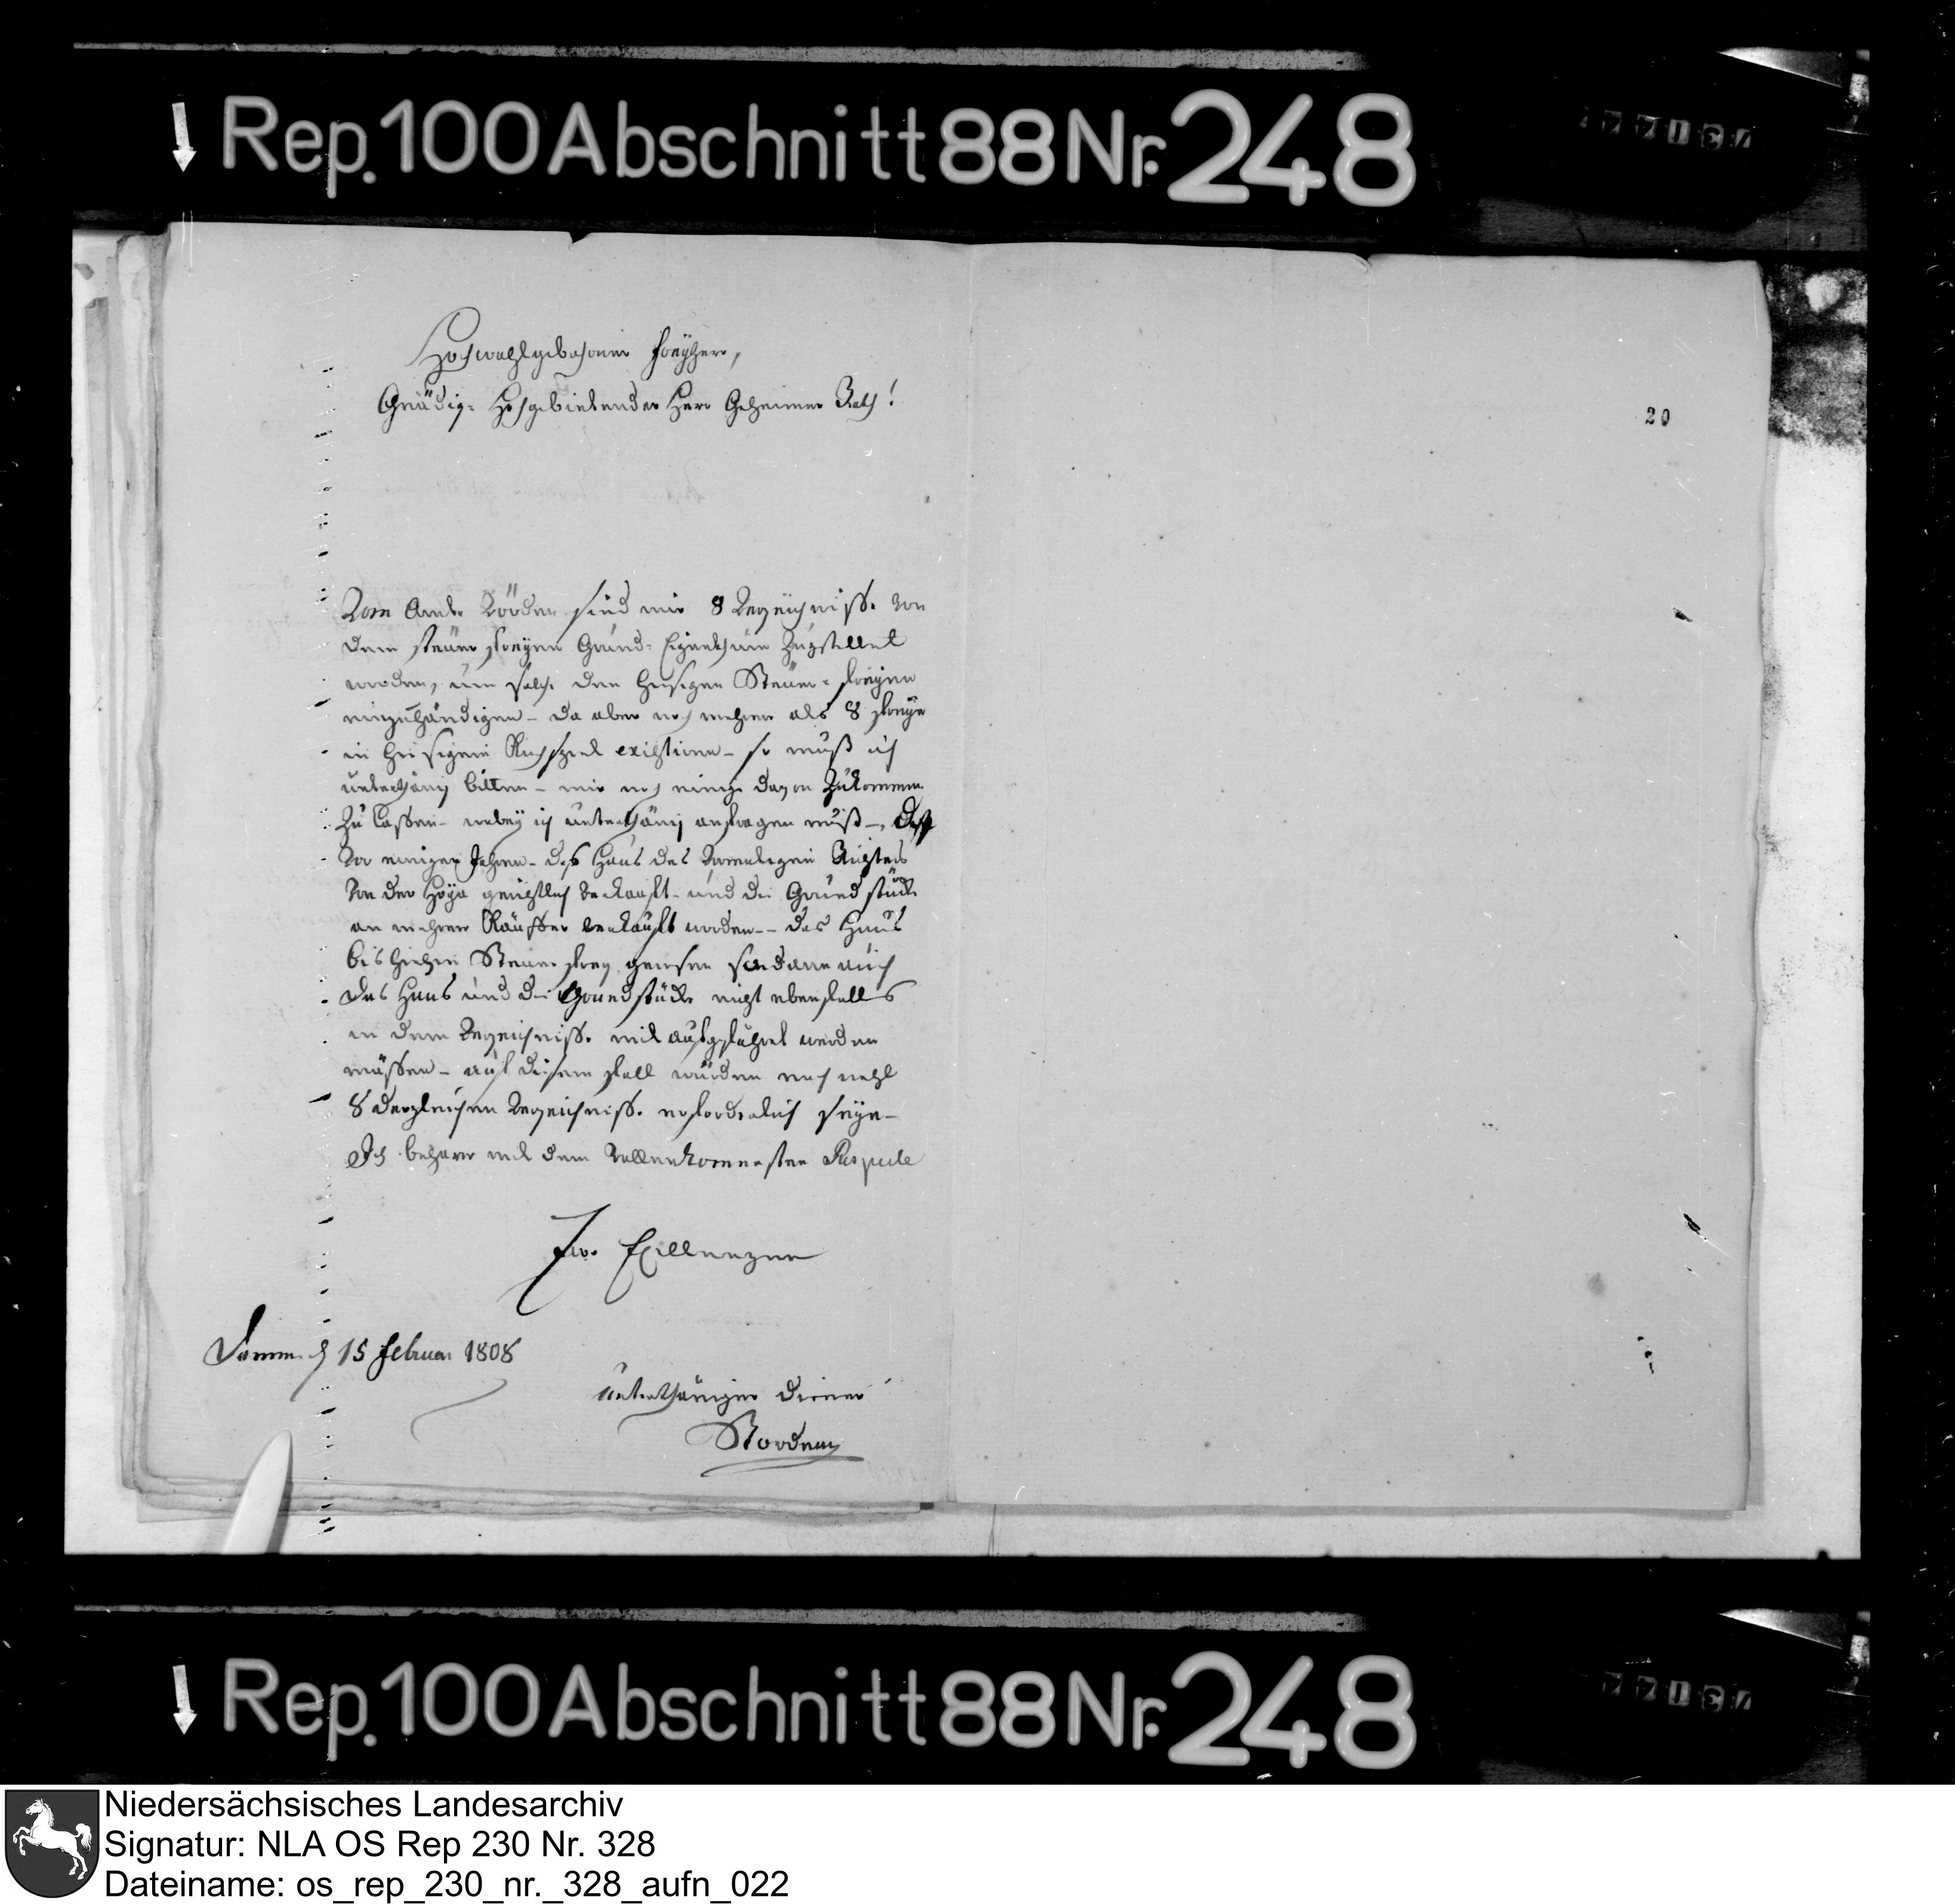 Rep. 100 Abschnitt 88 Nr. 248
Hochwohlgebohrner Freyherr,
Gnädig- Hochgebietender Herr Geheimer Rath!
20
Vom Amte Vörden sind mir 8 Verzeichnisse von
dem steuer freyen Grund-Eigenthum Zugestellet
worden, um solche den hiesigen Steuer-freyen
einzuhändigen - da aber noch mehrer als 8 freye
in hiesigem Kirchspiel existiren - so muß ich
unterthänig bitten - mir noch einige davon Zukommen
Zu lassen - wobey ich unterthänig anfragen muß - daß
vor einigen Jahren - das Haus des vormaligen
von der Hoya gerichtlich verkauft - und die Grundstücke
an mehrere Käuffer verkauft worden - das Haus
bis hiehin Steuer frey gewesen
das Haus und die Grundstücke nicht ebenfalls
in dem Verzeichnisse mit aufgeführet werden
müssen - auf diesem fall würden noch wohl
8 dergleichen Verzeichnisse erforderlich seyn -
Ich beharre mit dem Vollenkommensten Respecte
Ew. Excellenzen
Damme d 15 Februar 1808
unterthäniger Diener
Niedersächsisches Landesarchiv
Signatur: NLA OS Rep 230 Nr. 328
Dateiname: os_rep_230_nr._328_aufn_022
Rep. 100 Abschnitt 88 Nr. 248